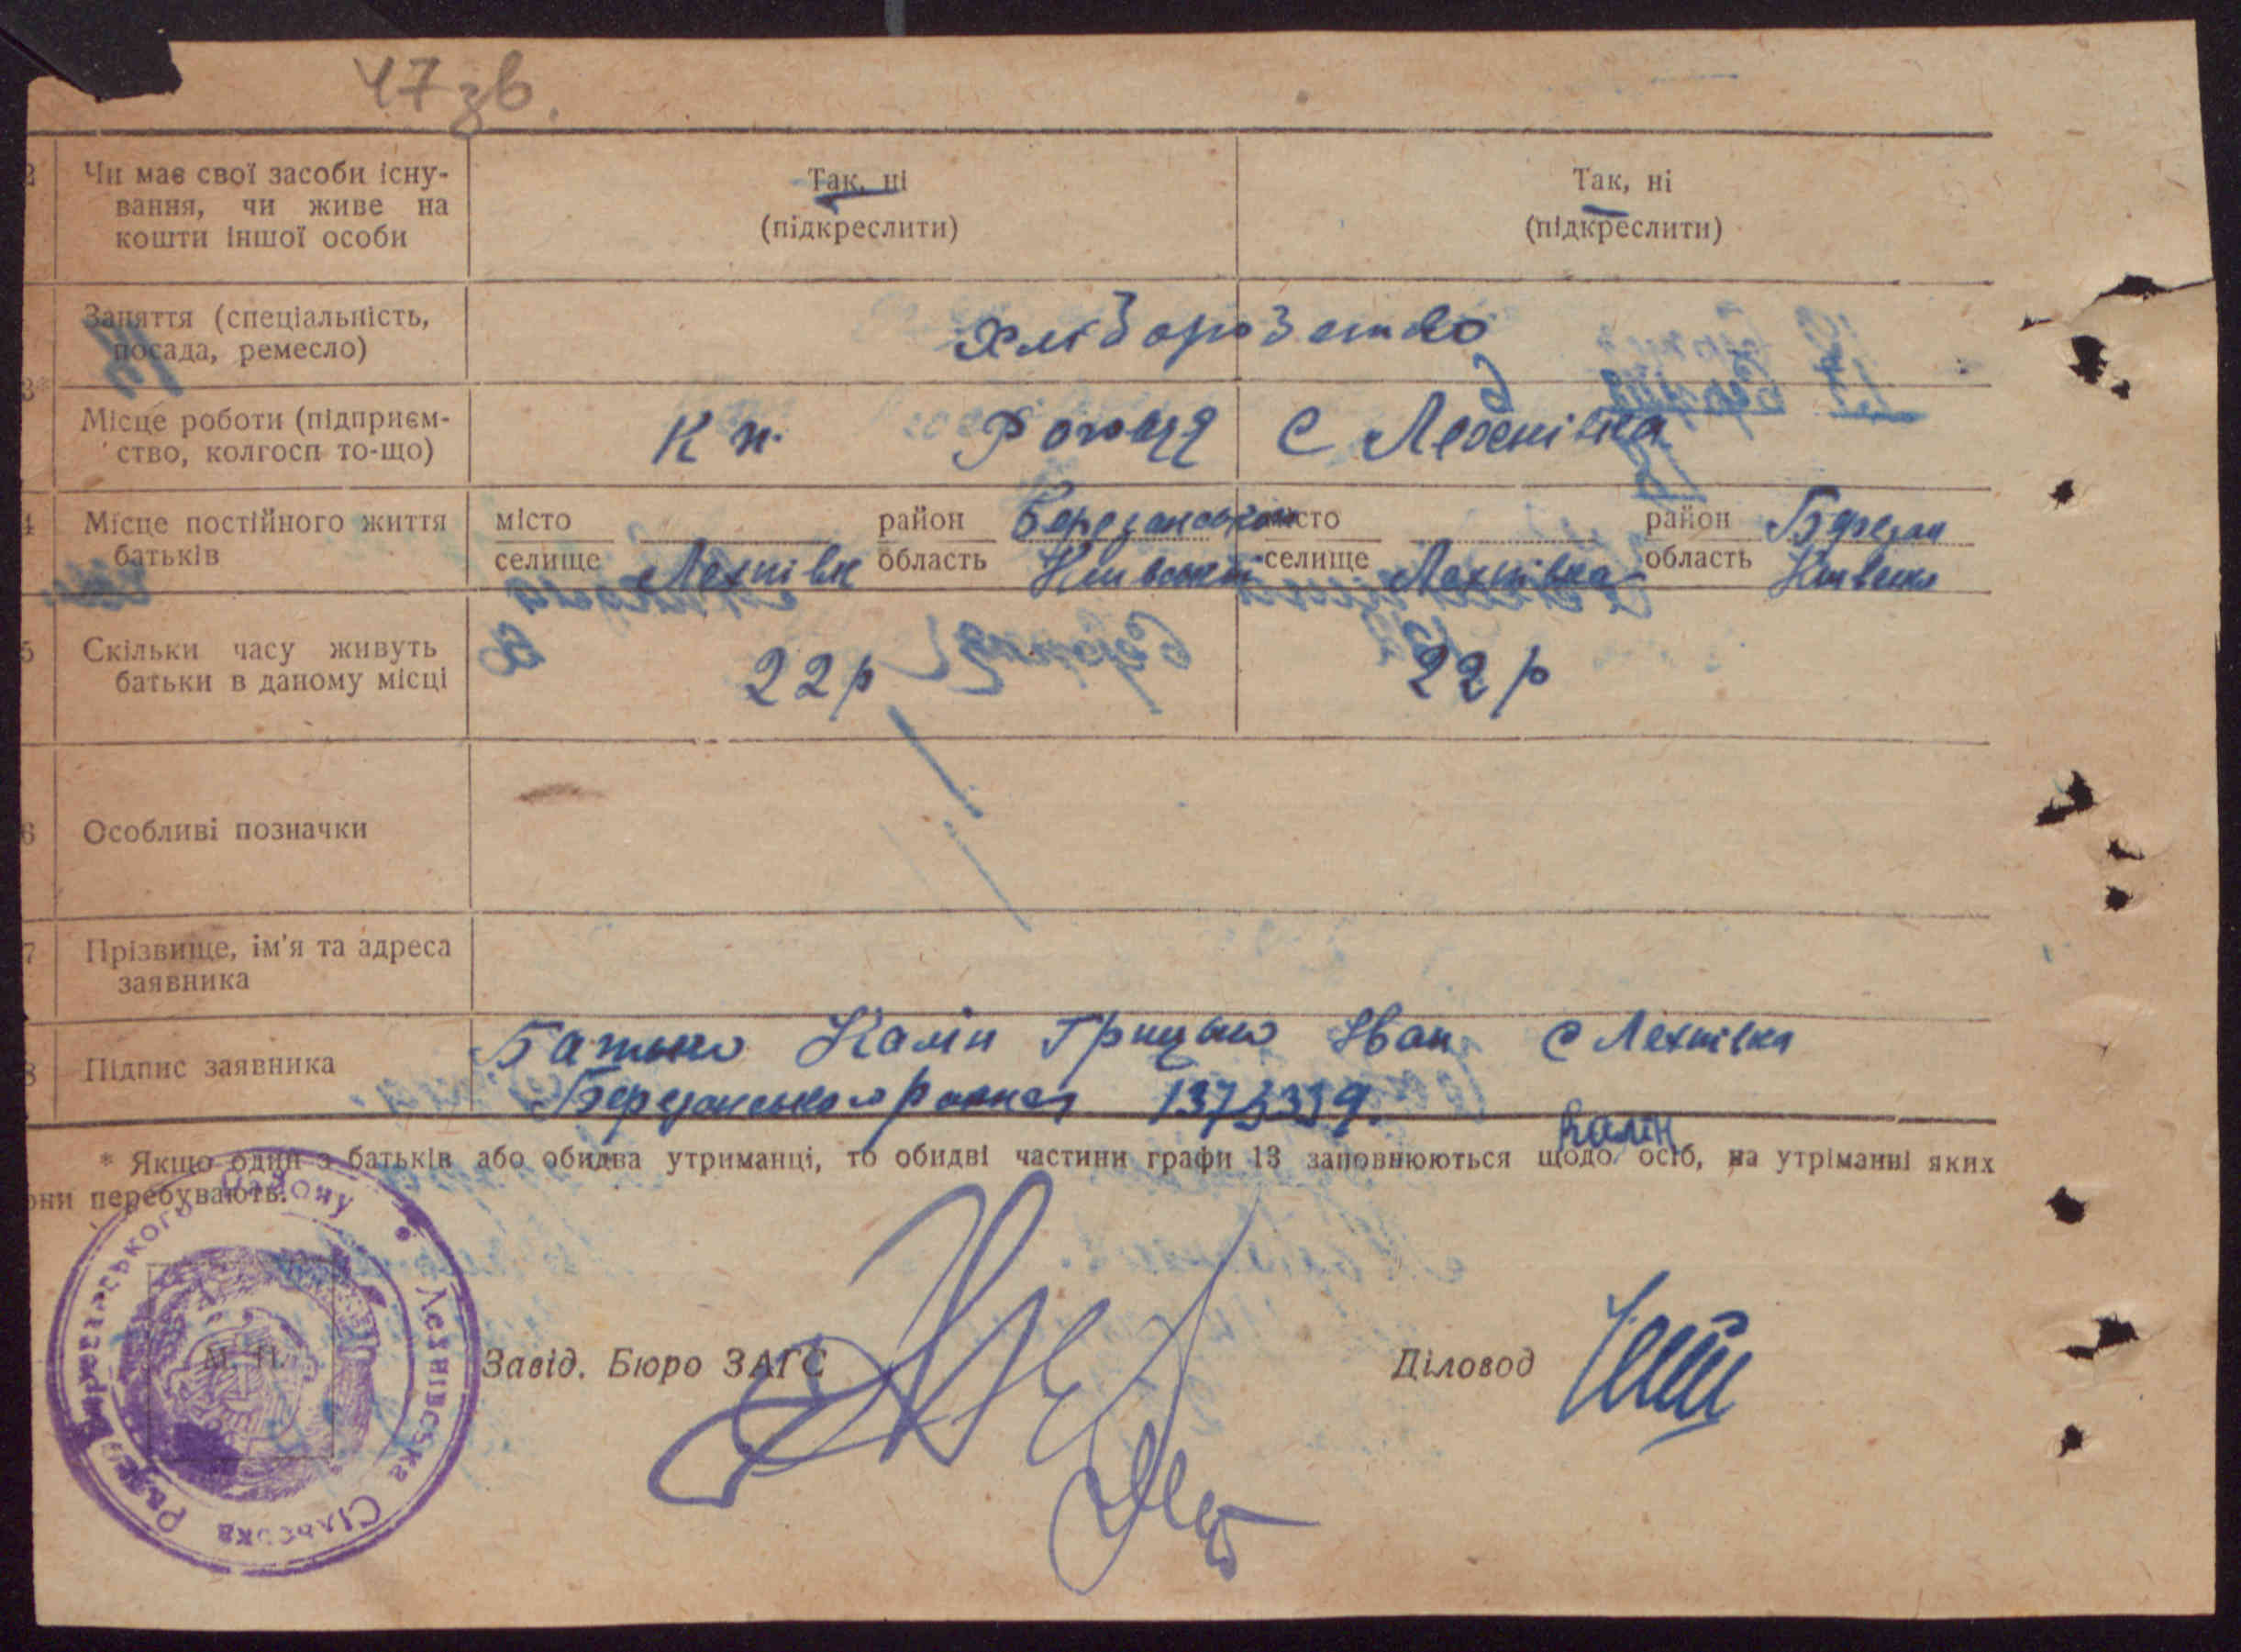 47 зв.
2 Чи має свої засоби існу-
вання, чи живе на
кошти іншої особи
Так, ні
(підкреслити)
Так, ні
(підкреслити)
Заняття (спеціальність,
посада, ремесло)
3*
Місце роботи (підприєм-
ство, колгосп то-що)
К п. С Лехнівка
4 Місце постійного життя
батьків
місто
селище Лехнівк
район Березанського
область Київської
місто
селище Лехнівка
район Березан
область Київсько
5 Скільки часу живуть
батьки в даному місці
22 р
22 р
6 Особливі позначки
7 Прізвище, ім'я та адреса
заявника
8 Підпис заявника
Батько Калін Грицько Іван с Лехнівка
Березанського района
Калін
* Якщо один з батьків або обидва утриманці, то обидві частини графи 13 заповнюються щодо осіб, на утриманні яких
они перебувають.
району
Лехнівська Сільська Рада
М. П.
Завід. Бюро ЗАГС
Діловод